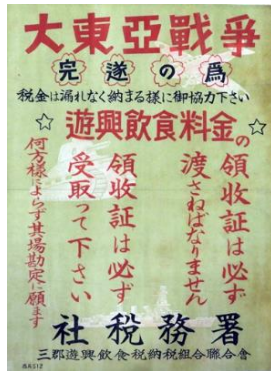 大東亞戰爭
完遂の爲
税金は漏れなく納まる様に御協力下さい
☆遊興飲食料金の☆
領收証は必ず
渡さねばなりません
領收証は必ず
受取って下さい
何方様によらず其場勘定に願ます
社税務署
三郡遊興飲食税納税組合聯合會